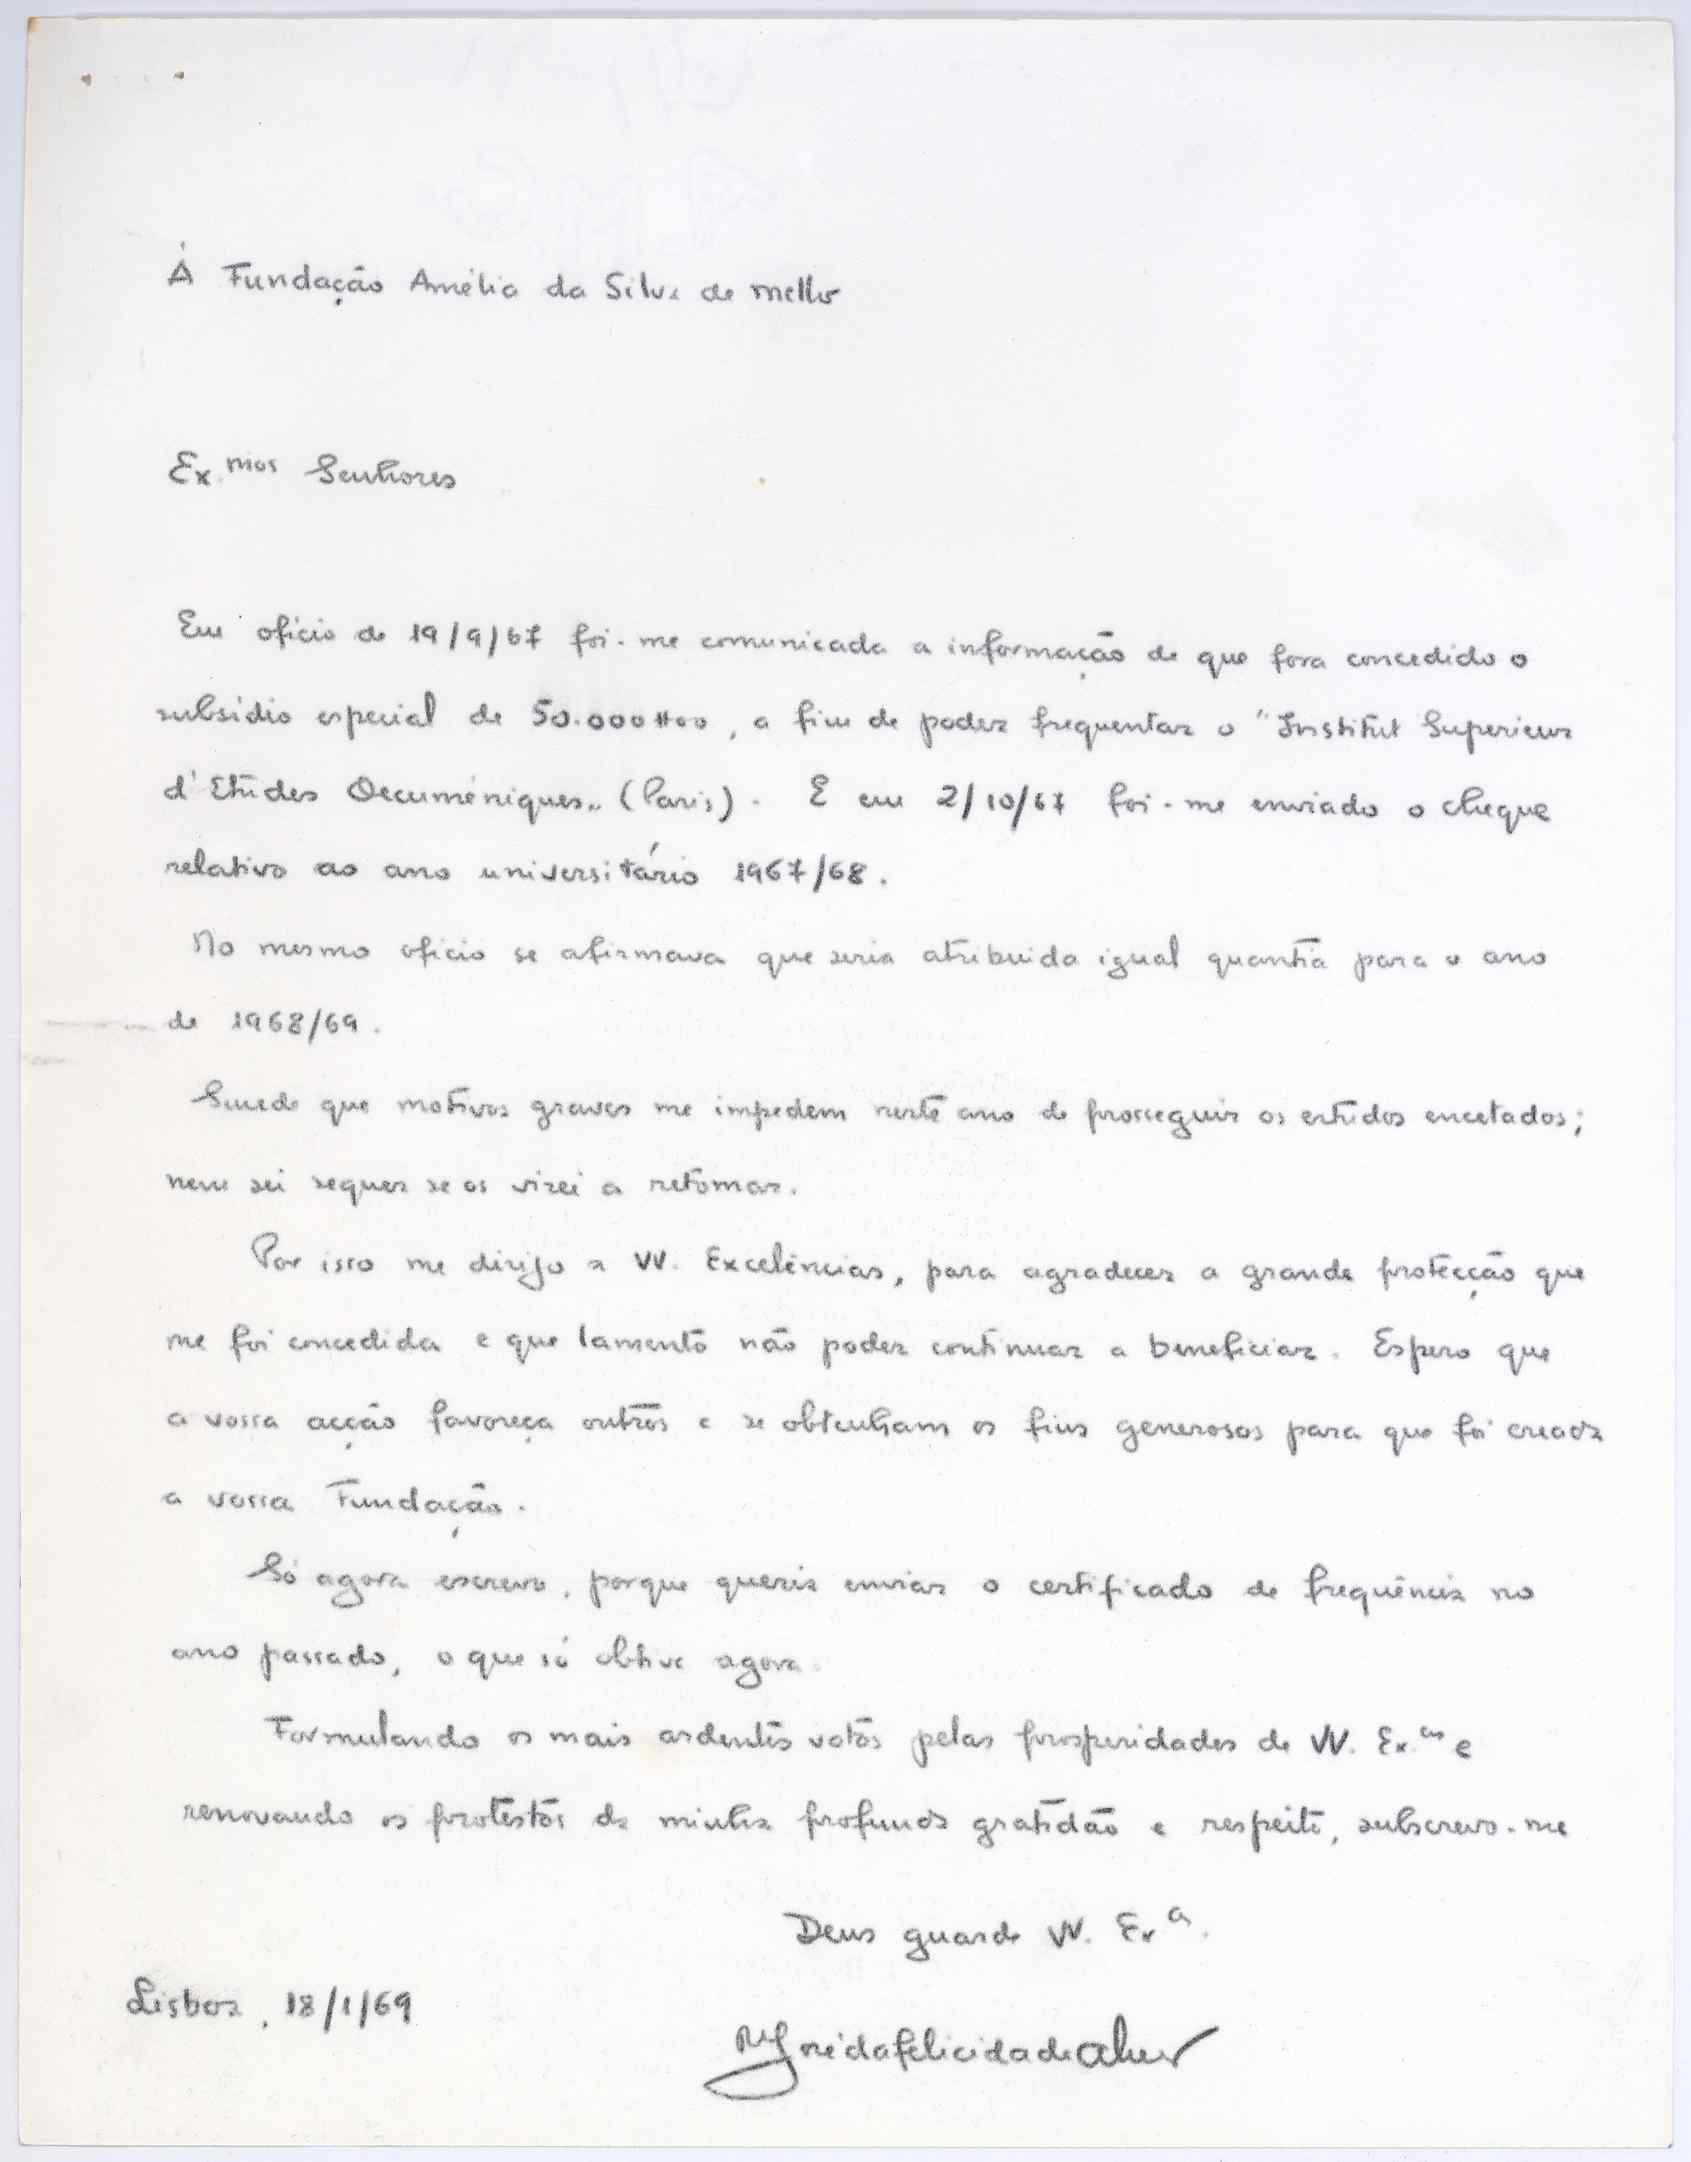 À Fundação Amélia da Silva de Mello
Ex.mos Senhores
Em ofício de 19/9/67 foi-me comunicada a informação de que fora concedido o
subsídio especial de 50.000$00, a fim de poder frequentar o "Institut Superieur
d'Etudes Oecuméniques" (Paris). E em 2/10/67 foi-me enviado o cheque
relativo ao ano universitário 1967/68.
No mesmo ofício se afirmava que seria atribuida igual quantia para o ano
de 1968/69.
Sucede que motivos graves me impedem neste ano de prosseguir os estudos encetados;
nem sei sequer se os virei a retomar.
Por isso me dirijo a VV. Excelências, para agradecer a grande protecção que
me foi concedida e que lamento não poder continuar a beneficiar. Espero que
a vossa acção favoreça outros e se obtenham os fins generosos para que foi creada
a vossa Fundação.
Só agora escrevo, porque queria enviar o certificado de frequência no
ano passado, o que só obtive agora.
Formulando os mais ardentes votos pelas prosperidades de VV. Ex.as e
renovando os protestos da minha profunda gratidão e respeito, subscrevo-me
Deus guarde VV. Ex.as
Lisboa, 18/1/69
José da felicidade alves